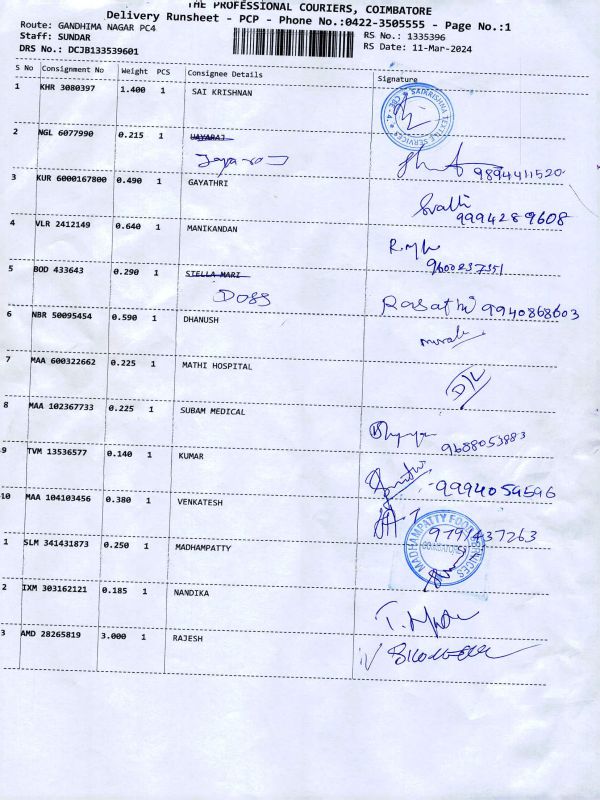 THE PROFESSIONAL COURIERS, COIMBATORE
Delivery Runsheet - PCP - Phone No.:0422-3505555 - Page No.:1
Route: GANDHIMA NAGAR PC4
RS No.: 1335396
Staff: SUNDAR
RS Date: 11-Mar-2024
DRS No.: DCJB133539601
S No Consignment No Weight PCS Consignee Details Signature
1 KHR 3080397 1.400 1 SAI KRISHNAN
SAIKRISHNA TEXTILE SERVICES CBE-4.
2 NGL 6077990 0.215 1 JAYARAJ
Jayaraj
9894411520
3 KUR 6000167800 0.490 1 GAYATHRI
Swathi
9994289608
4 VLR 2412149 0.640 1 MANIKANDAN
9600837351
5 BOD 433643 0.290 1 STELLA MARI
Doss
Rasathi 9940868603
6 NBR 50095454 0.590 1 DHANUSH
murali
7 MAA 600322662 0.225 1 MATHI HOSPITAL
8 MAA 102367733 0.225 1 SUBAM MEDICAL
9688053883
9 TVM 13536577 0.140 1 KUMAR
9994059596
10 MAA 104103456 0.380 1 VENKATESH
9791437263
1 SLM 341431873 0.250 1 MADHAMPATTY
MADHAMPATTY FOOD SERVICES
COIMBATORE
2 IXM 303162121 0.185 1 NANDIKA
3 AMD 28265819 3.000 1 RAJESH